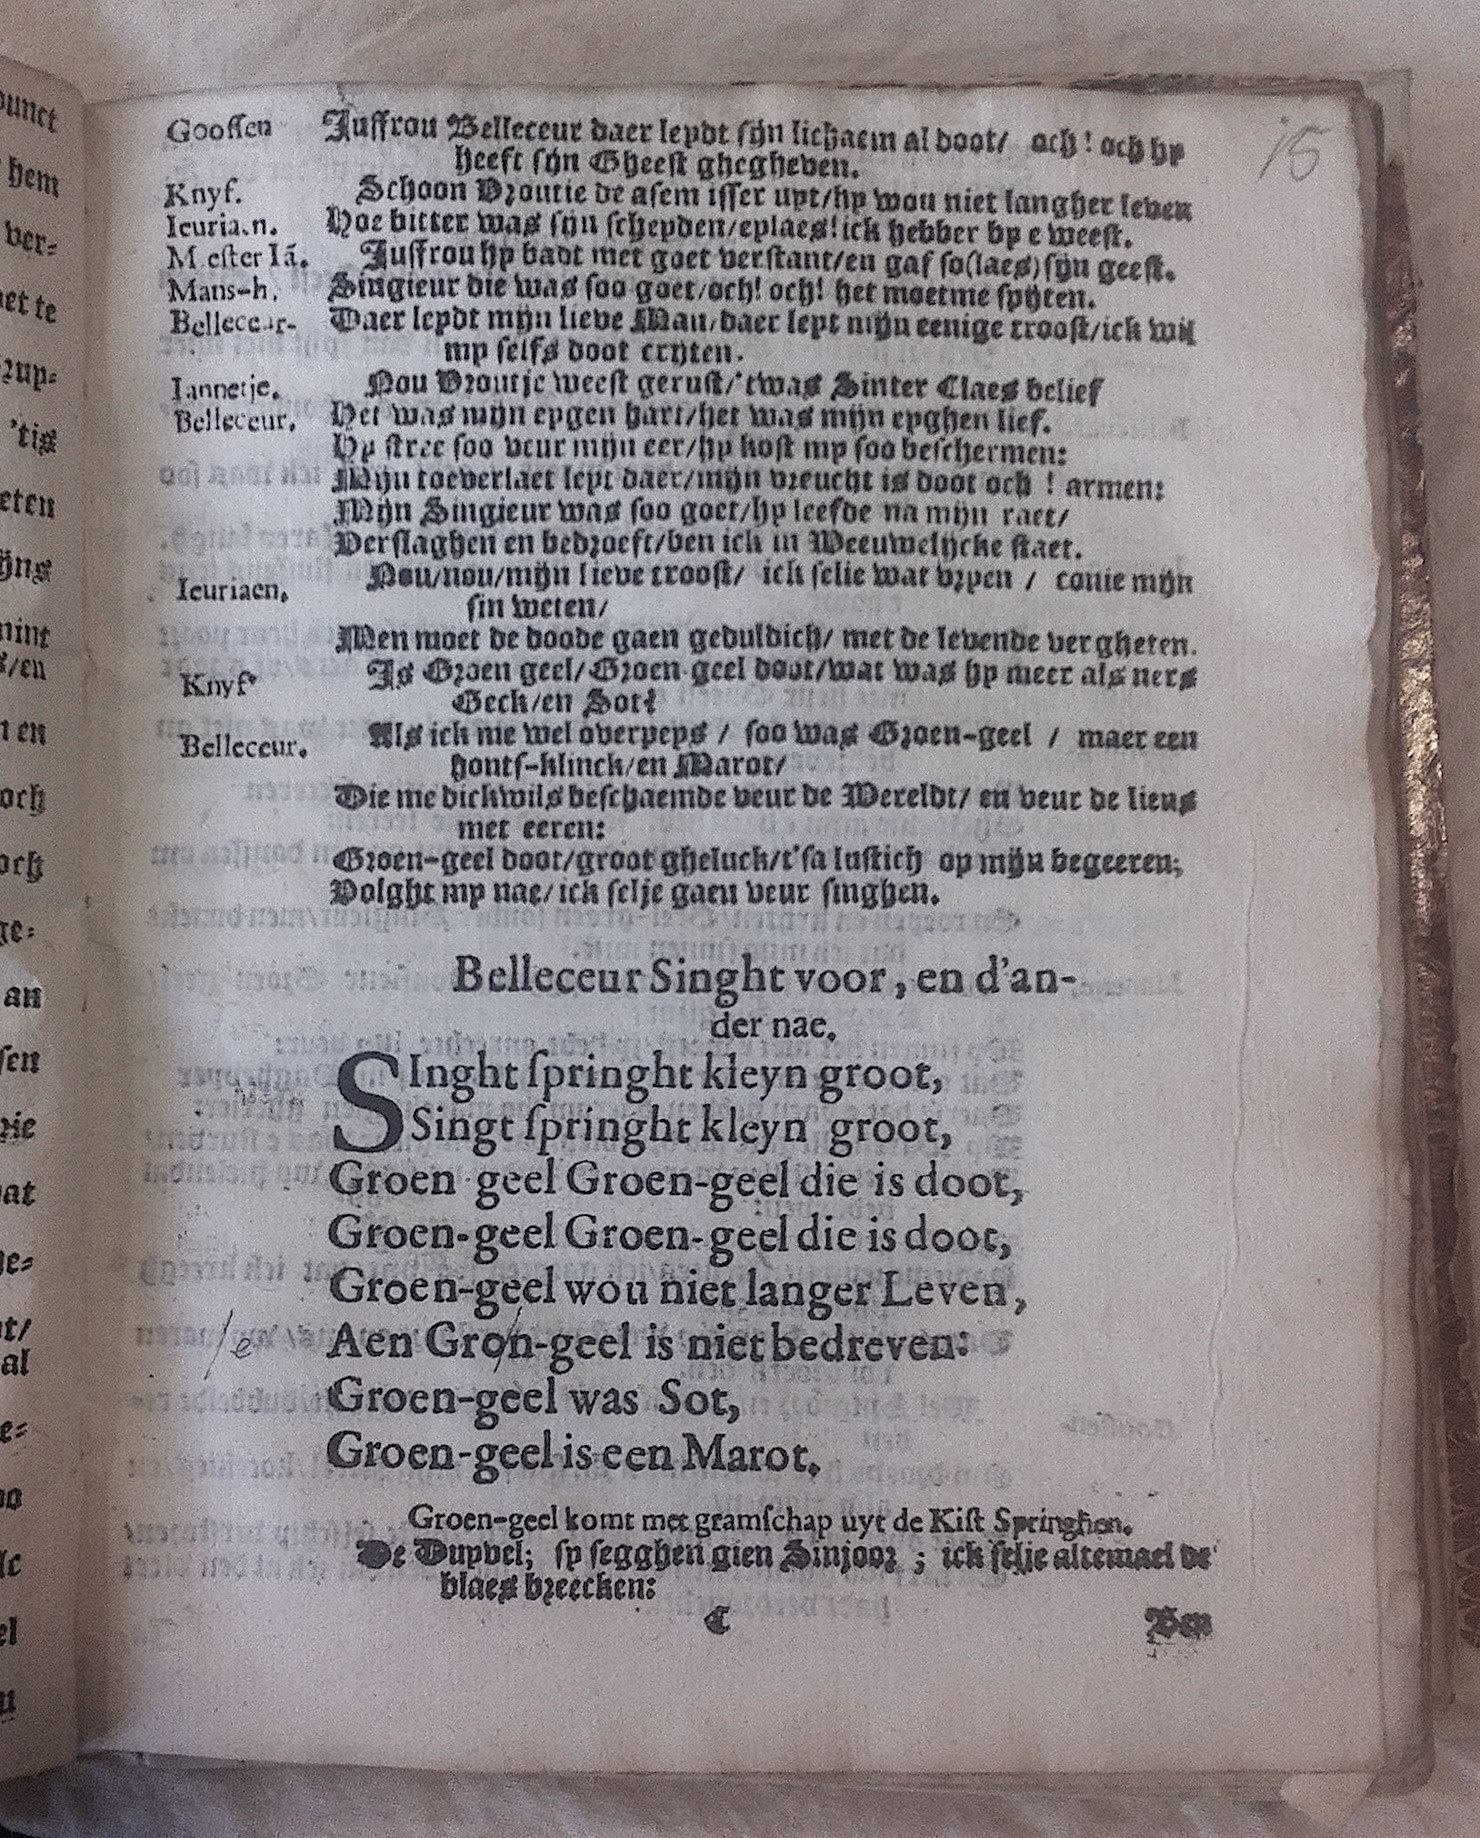 15
Gooſſen Juffrou Belleceur daer leydt ſijn lichaem al doot/ och! och hy
heeft ſijn Gheeſt ghegheven.
Knyf. Schoon Vroutie de aſem iſſer uyt/hy wou niet langher leven
Ieuriaen. Hoe bitter was ſijn ſcheyden/eylaes! ick hebber by e weeſt.
Meſter Iã. Juffrou hy badt met goet verſtant/en gaf ſo(laes) ſijn geeſt.
Mans-h. Singieur die was ſoo goet/och! och! het moetme ſpijten.
Belleceur- Daer leydt mijn lieve Man/daer leyt mijn eenige trooſt/ick wil
my ſelfs doot crijten.
Iannetje. Nou Vroutje weeſt geruſt/'twas Sinter Claes belief
Belleceur. Het was mijn eygen hart/het was mijn eyghen lief.
Hy ſtree ſoo veur mijn eer/hy koſt my ſoo beſchermen:
Mijn toeverlaet leyt daer/mijn vreucht is doot och! armen:
Mijn Singieur was ſoo goet/hy leefde na mijn raet/
Verſlaghen en bedroeft/ben ick in Weeuwelijcke ſtaet.
Ieuriaen. Nou/nou/mijn lieve trooſt/ ick ſelje wat vryen / conje mijn
ſin weten/
Men moet de doode gaen geduldich/ met de levende vergheten.
Knyf Is Groen geel/Groen-geel doot/wat was hy meer als ners
Geck/en Sot?
Belleceur. Als ick me wel overpeys / ſoo was Groen-geel / maer een
hontſ-klinck/en Marot/
Die me dickwils beſchaemde veur de Wereldt/ en veur de liens
met eeren:
Groen-geel doot/groot gheluck/t'ſa luſtich op mijn begeeren;
Volght my nae/ick ſelje gaen veur ſinghen.
Belleceur Singht voor, en d'an-
der nae.
SInght ſpringht kleyn groot,
Singt ſpringht kleyn groot,
Groen geel Groen-geel die is doot,
Groen-geel Groen-geel die is doot,
Groen-geel wou niet langer Leven,
/e Aen Gron-geel is niet bedreven:
Groen-geel was Sot,
Groen-geel is een Marot.
Groen-geel komt met gramſchap uyt de Kiſt Springhen.
De Duyvel; ſy ſegghen gien Sinjoor; ick ſelje altemael de
blaes breecken:
C Ben